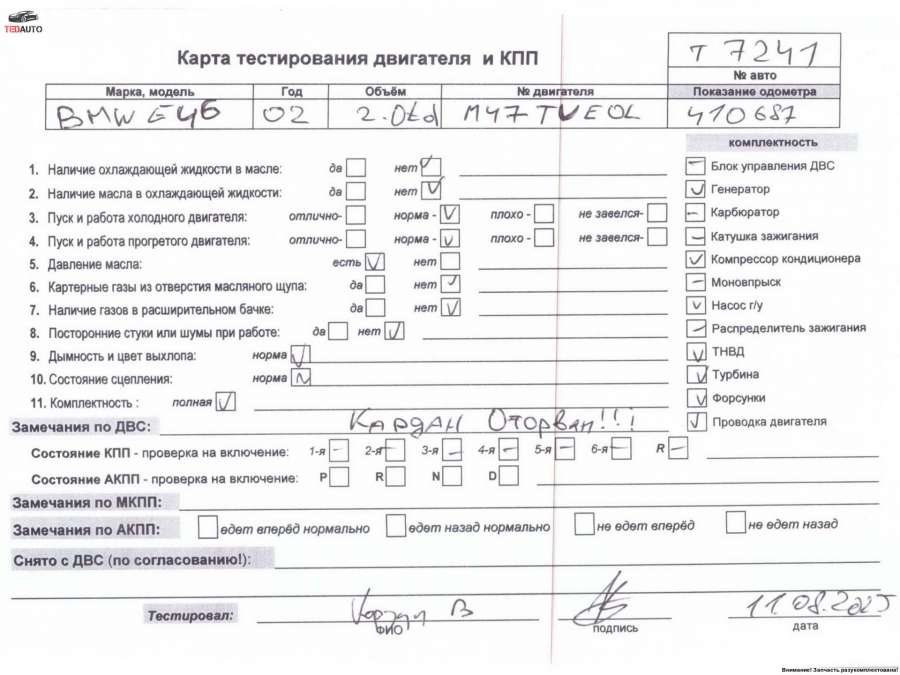 TEDAUTO
Карта тестирования двигателя и КПП
т 7241
№ авто
Марка, модель Год Объём № двигателя Показание одометра
BMW E46 02 2.0td M47TUEOL 410687
комплектность
1. Наличие охлаждающей жидкости в масле: да нет
Блок управления ДВС
2. Наличие масла в охлаждающей жидкости: да нет
Генератор
3. Пуск и работа холодного двигателя: отлично- норма - плохо - не завелся-
Карбюратор
4. Пуск и работа прогретого двигателя: отлично- норма - плохо - не завелся-
Катушка зажигания
5. Давление масла: есть нет
Компрессор кондиционера
6. Картерные газы из отверстия масляного щупа: да нет
Моновпрыск
7. Наличие газов в расширительном бачке: да нет
Насос г/у
8. Посторонние стуки или шумы при работе: да нет
Распределитель зажигания
9. Дымность и цвет выхлопа: норма
ТНВД
10. Состояние сцепления: норма
Турбина
11. Комплектность : полная
Форсунки
Проводка двигателя
Замечания по ДВС: Кардан Оторван!!!
Состояние КПП - проверка на включение: 1-я 2-я 3-я 4-я 5-я 6-я R
Состояние АКПП - проверка на включение: P R N D
Замечания по МКПП:
Замечания по АКПП: едет вперёд нормально едет назад нормально не едет вперёд не едет назад
Снято с ДВС (по согласованию!):
Тестировал: В 11.08.2025
ФИО подпись дата
Внимание! Запчасть разукомплектована!